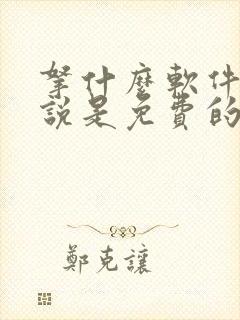 拏什麼軟件
說是免費的
鄭克讓